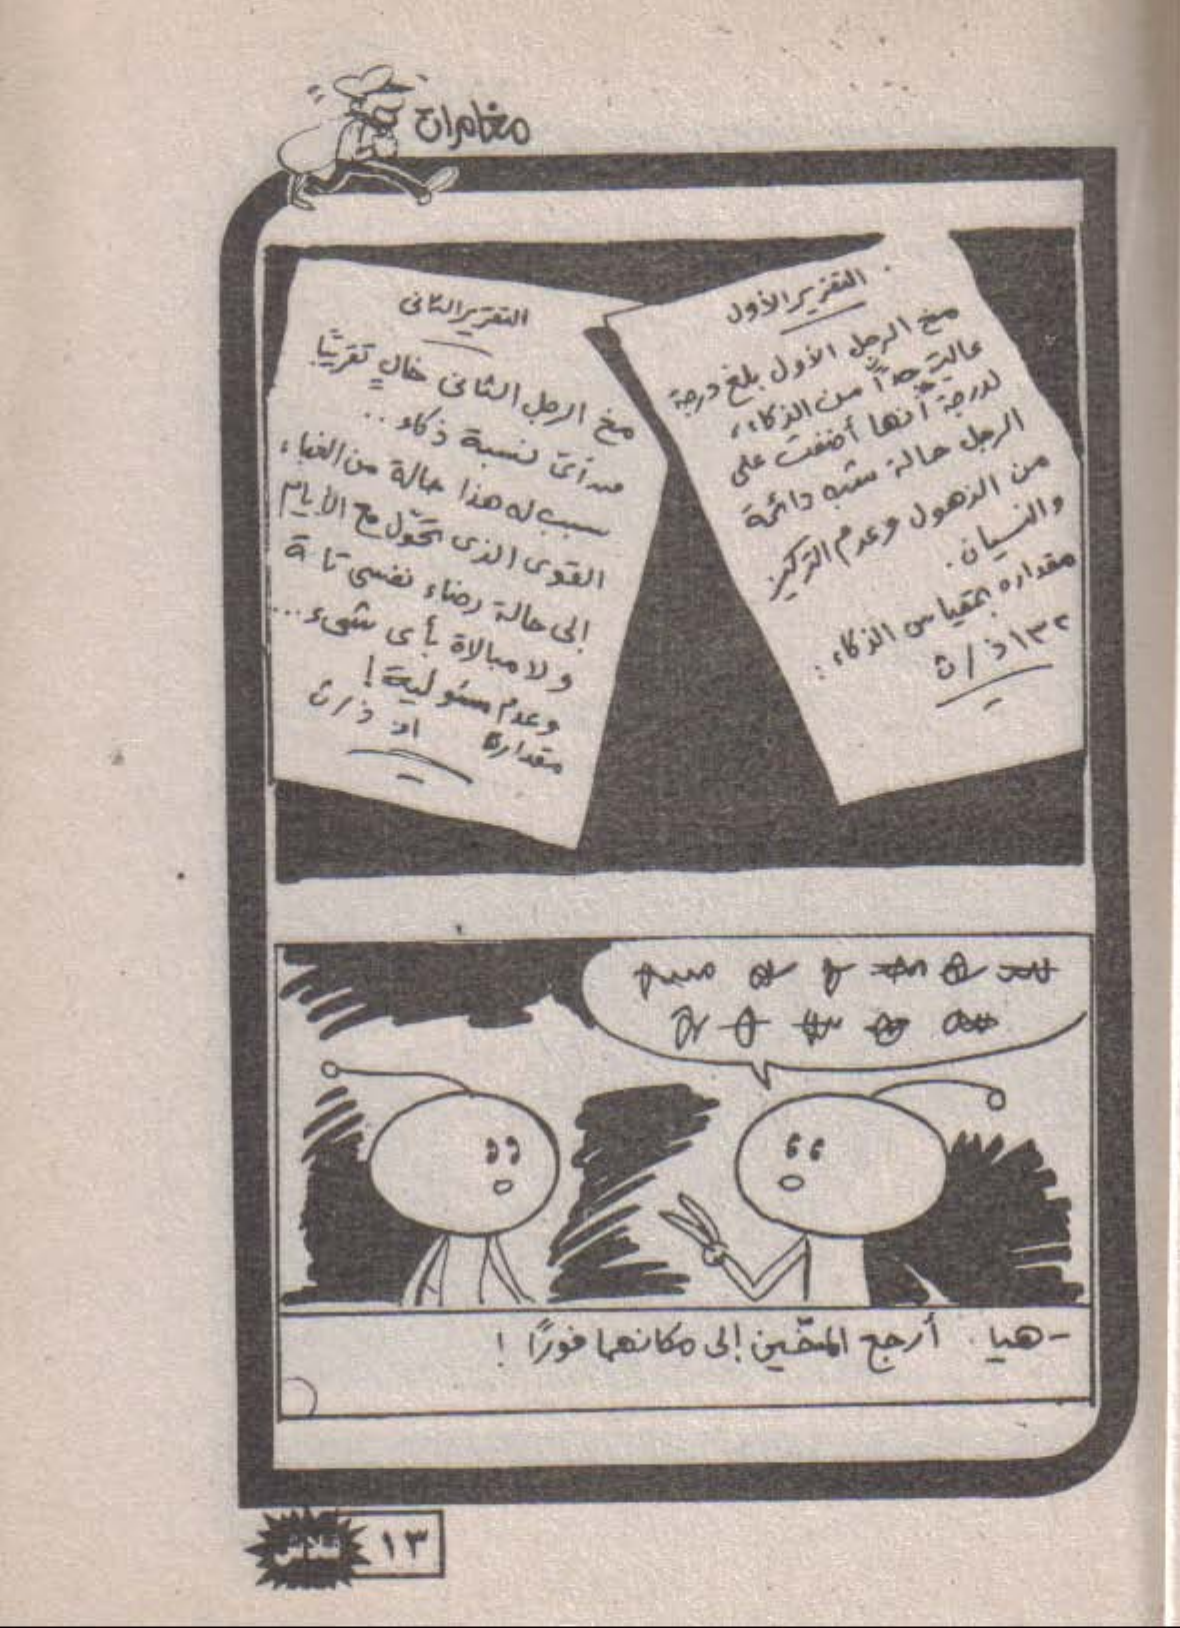 مغامرات
التقرير الأول
مخ الرجل الأول بلغ درجة
عالية جداً من الذكاء،
لدرجة أنها أضفت على
الرجل حالة شبه دائمة
من الذهول وعدم التركيز
والنسيان.
مقداره بمقياس الذكاء:
١٣٢ ذ/ث
التقرير الثانى
مخ الرجل الثانى خالٍ تقريبًا
من أى نسبة ذكاء..
سبب له هذا حالة من الغباء
القوى الذى تحوّل مع الأيام
إلى حالة رضاء نفسى تامة
ولا مبالاة بأى شىء...
وعدم مسئولية!
مقداره ذ/ث
- هيا. أرجع المخّين إلى مكانهما فورًا!
١٣
فلاش